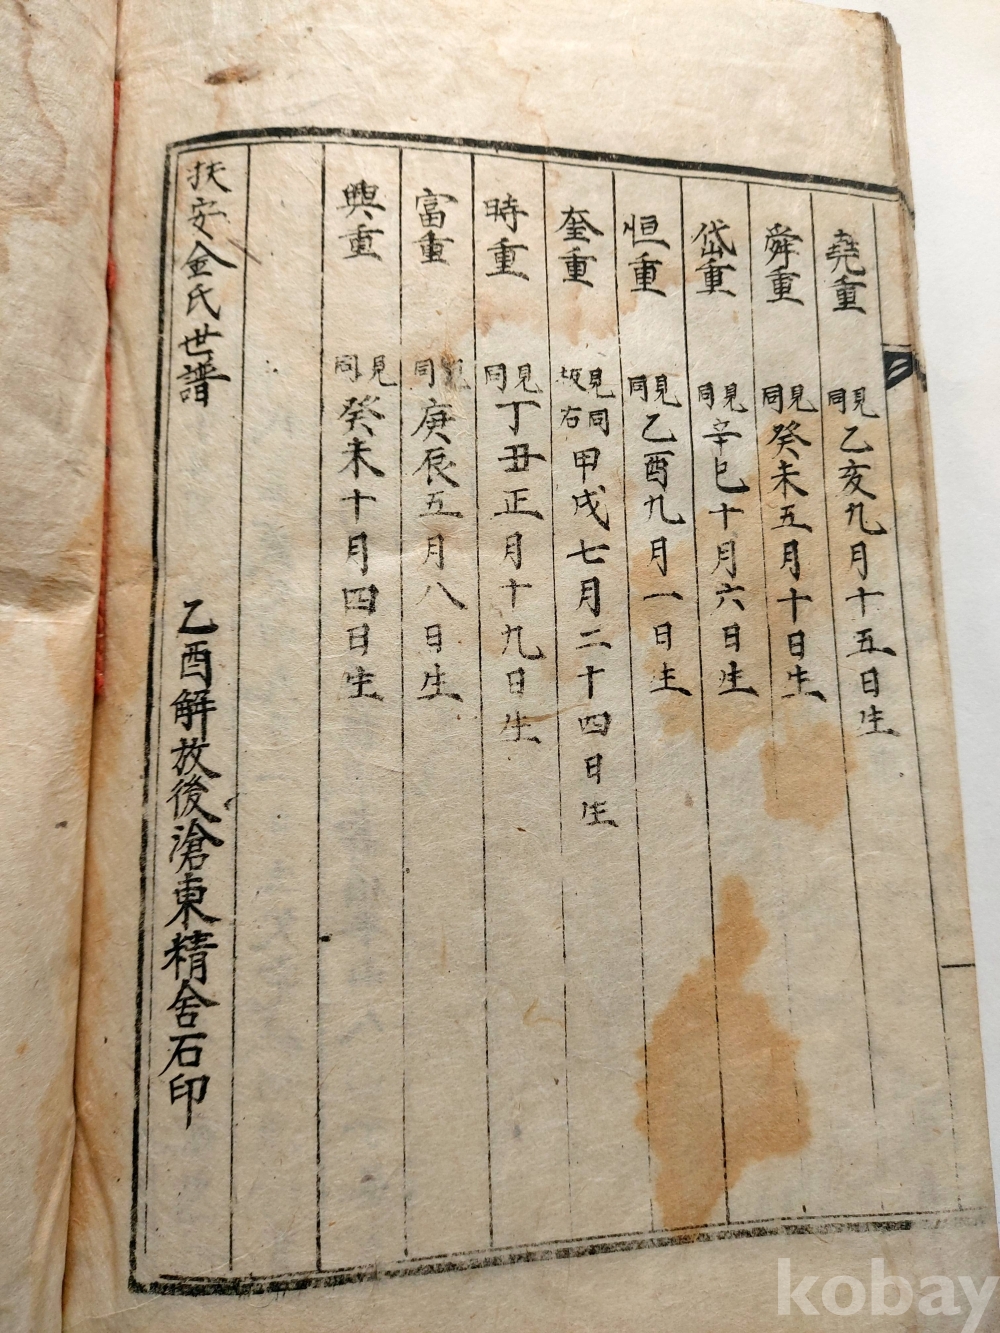 堯重 見同 乙亥九月十五日生
舜重 見同 癸未五月十日生
岱重 見同 辛巳十月六日生
恒重 見同 乙酉九月一日生
奎重 見同坂右 甲戌七月二十四日生
時重 見同 丁丑正月十九日生
富重 見同 庚辰五月八日生
興重 見同 癸未十月四日生
扶安金氏世譜 乙酉解放後滄東精舍石印
kobay